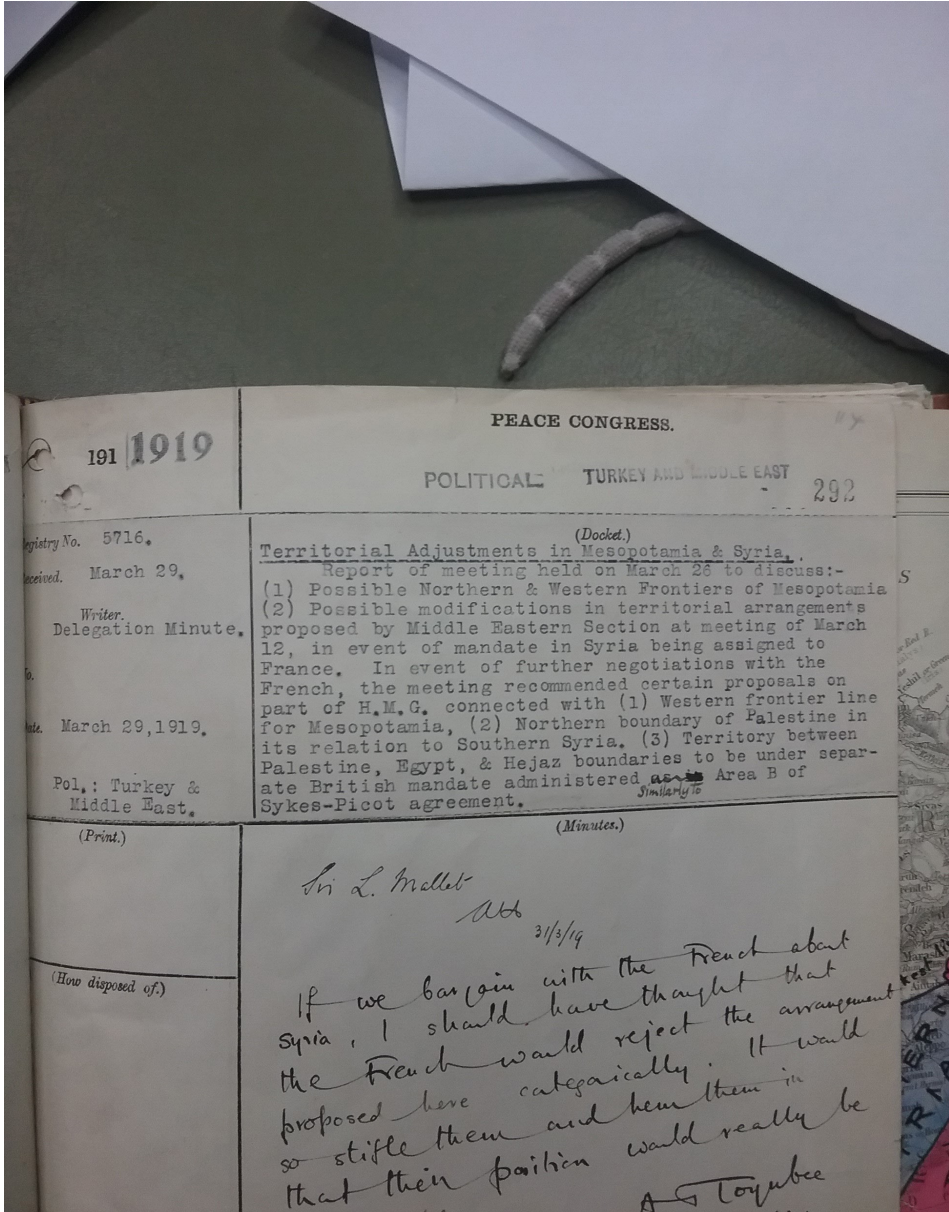 PEACE CONGRESS.
191 1919
POLITICAL TURKEY AND MIDDLE EAST
292
egistry No. 5716.
eceived. March 29.
Writer.
Delegation Minute.
o.
ate. March 29,1919.
Pol.: Turkey &
Middle East.
(Docket.)
Territorial Adjustments in Mesopotamia & Syria.
Report of meeting held on March 26 to discuss:-
(1) Possible Northern & Western Frontiers of Mesopotamia
(2) Possible modifications in territorial arrangements
proposed by Middle Eastern Section at meeting of March
12, in event of mandate in Syria being assigned to
France. In event of further negotiations with the
French, the meeting recommended certain proposals on
part of H.M.G. connected with (1) Western frontier line
for Mesopotamia, (2) Northern boundary of Palestine in
its relation to Southern Syria. (3) Territory between
Palestine, Egypt, & Hejaz boundaries to be under separ-
ate British mandate administered Similarly to Area B of
Sykes-Picot agreement.
(Print.)
(How disposed of.)
(Minutes.)
Sir L. Mallet
31/3/19
If we bargain with the French about
Syria, I should have thought that
the French would reject the arrangement
proposed here categorically. It would
so stifle them and hem them in
that their position would really be
A J Toynbee